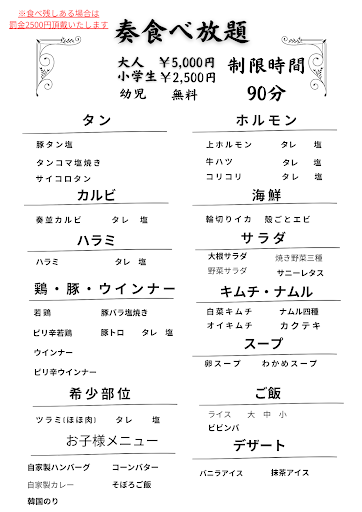 ※食べ残しある場合は
罰金2500円頂戴いたします
奏食べ放題
大人 ￥5,000円
小学生￥2,500円
幼児 無料
制限時間
90分
タン
豚タン塩
タンコマ塩焼き
サイコロタン
カルビ
奏並カルビ タレ 塩
ハラミ
ハラミ タレ 塩
鶏・豚・ウインナー
若鶏 豚バラ塩焼き
ピリ辛若鶏 豚トロ タレ 塩
ウインナー
ピリ辛ウインナー
希少部位
ツラミ(ほほ肉) タレ 塩
お子様メニュー
自家製ハンバーグ コーンバター
自家製カレー そぼろご飯
韓国のり
ホルモン
上ホルモン タレ 塩
牛ハツ タレ 塩
コリコリ タレ 塩
海鮮
輪切りイカ 殻ごとエビ
サラダ
大根サラダ 焼き野菜三種
野菜サラダ サニーレタス
キムチ・ナムル
白菜キムチ ナムル四種
オイキムチ カクテキ
スープ
卵スープ わかめスープ
ご飯
ライス 大 中 小
ビビンバ
デザート
バニラアイス 抹茶アイス